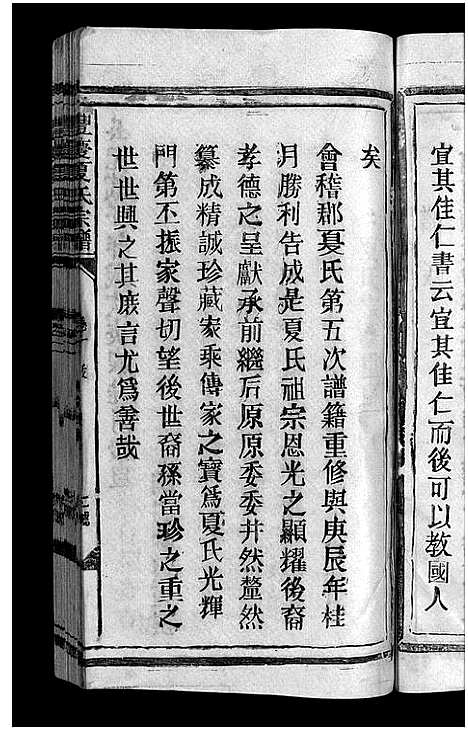 宜其佳仁書云宜其佳仁而後可以教國人
矣
會稽郡夏氏第五次譜籍重修與庚辰年桂
月勝利告成是夏氏祖宗恩光之顯耀後裔
孝德之呈獻承前繼后原原委委井然釐然
纂成精誠珍藏家乘傳家之寶爲夏氏光輝
門第丕振家聲切望後世裔孫當珍之重之
世世興之其庶言尤爲善哉
夏氏宗譜